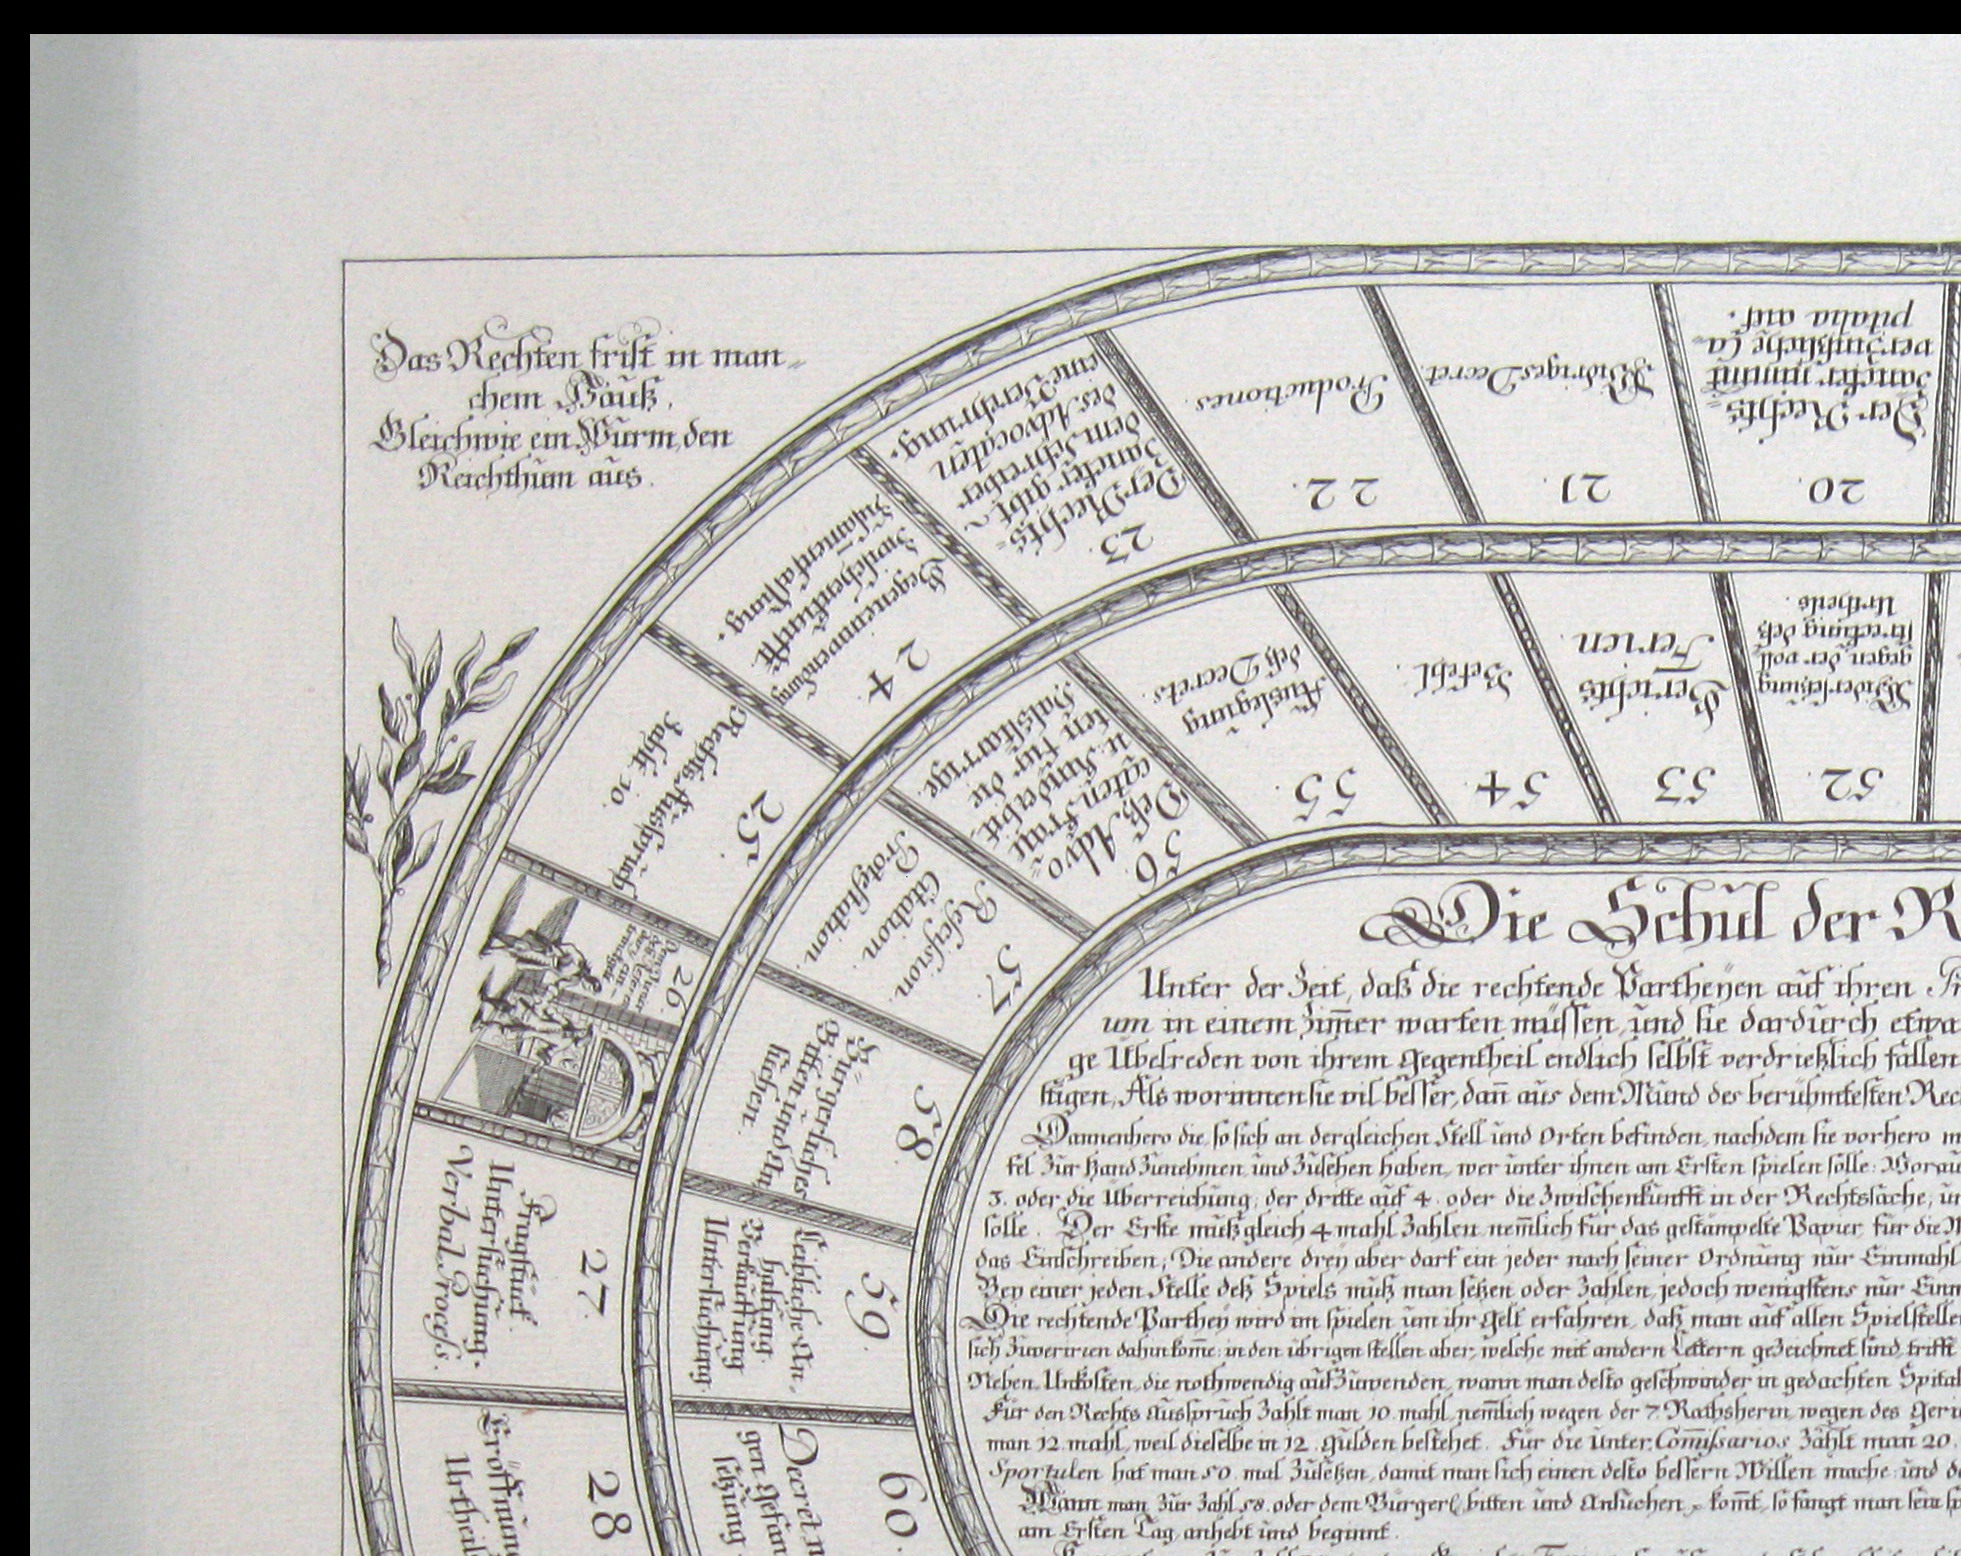 Das Rechten frist in man=
chem Hauß,
Gleichwie ein Wurm, den
Reichthum aus.
20.
Der Rechts=
zancker nimmt
verdrüßliche Ca=
pitalia auf.
21.
Widriges Decret.
22.
Productiones.
23.
Der Rechts=
zancker gibt
dem Schreiber
des Advocaten
eine Verehrung.
24.
Gegeneinwendung
Zwischenkunfft.
Zusamenfassung.
25.
Rechts Ausspruch
Zahlt. 10.
26.
27.
Fragstuck.
Untersuchung.
Verbal Process.
28.
Eröffnung
Urtheil
52.
Widersetzung
gegen der voll
streckung deß
Urtheils.
53
Gerichts
Ferien
54.
Befehl.
55.
Auslegung
deß Decrets.
56.
Deß Advo=
caten Frau
u. Kinder bit=
ten für die
Halsstarrige.
57.
Rescission.
Citation.
Protestation.
58
Bürgerliches
Bitten und An=
suchen.
59.
Leibliche An=
haltung.
Verkauffung
Untersuchung.
60.
Decret
gen Gefan
setzung
Die Schul der R
Unter der Zeit, daß die rechtende Partheyen auf ihren
um in einem Zim̄er warten müssen, und sie dardurch etwa
ge Übelreden von ihrem Gegentheil endlich selbst verdrießlich fallen
stigen, Als worinnen sie vil besser, dan̄ aus dem Mund des berühmtesten Rec
Dannenhero die, so sich an dergleichen Stell und Orten befinden, nachdem sie vorhero
fel zur Hand zunehmen, und zusehen haben, wer unter ihnen am Ersten spielen solle: Worau
3. oder die Überreichung, der dritte auf 4. oder die Zwischenkunfft in der Rechtssache, un
solle. Der Erste muß gleich 4 mahl Zahlen nem̄lich für das gestämpelte Papier, für die
das Einschreiben; Die andere drey aber darf ein jeder nach seiner Ordnung nur Einmahl
Bey einer jeden Stelle deß Spiels muß man setzen oder Zahlen, jedoch wenigstens nur Einm
Die rechtende Parthey wird im spielen um ihr Gelt erfahren, daß man auf allen Spielstelle
sich zuverirren dahin kom̄e: in den übrigen stellen aber, welche mit andern Lettern gezeichnet sind, trifft
Neben Unkosten, die nothwendig aufzuwenden, wann man desto geschwinder in gedachten Spital
Für den Rechts Ausspruch Zahlt man 10. mahl, nem̄lich wegen der 7. Rathsherrn, wegen des Geri
man 12. mahl, weil dieselbe in 12. Gulden bestehet. Für die Unter: Com̄issarios Zahlt man 20.
Sportulen hat man 50. mal Zusetzen, damit man sich einen desto bessern Willen mache: und
Wann man Zur Zahl 58. oder dem Bürgerl: bitten und Ansuchen kom̄t, so fangt man sein
am Ersten Tag, anhebt und beginnt.